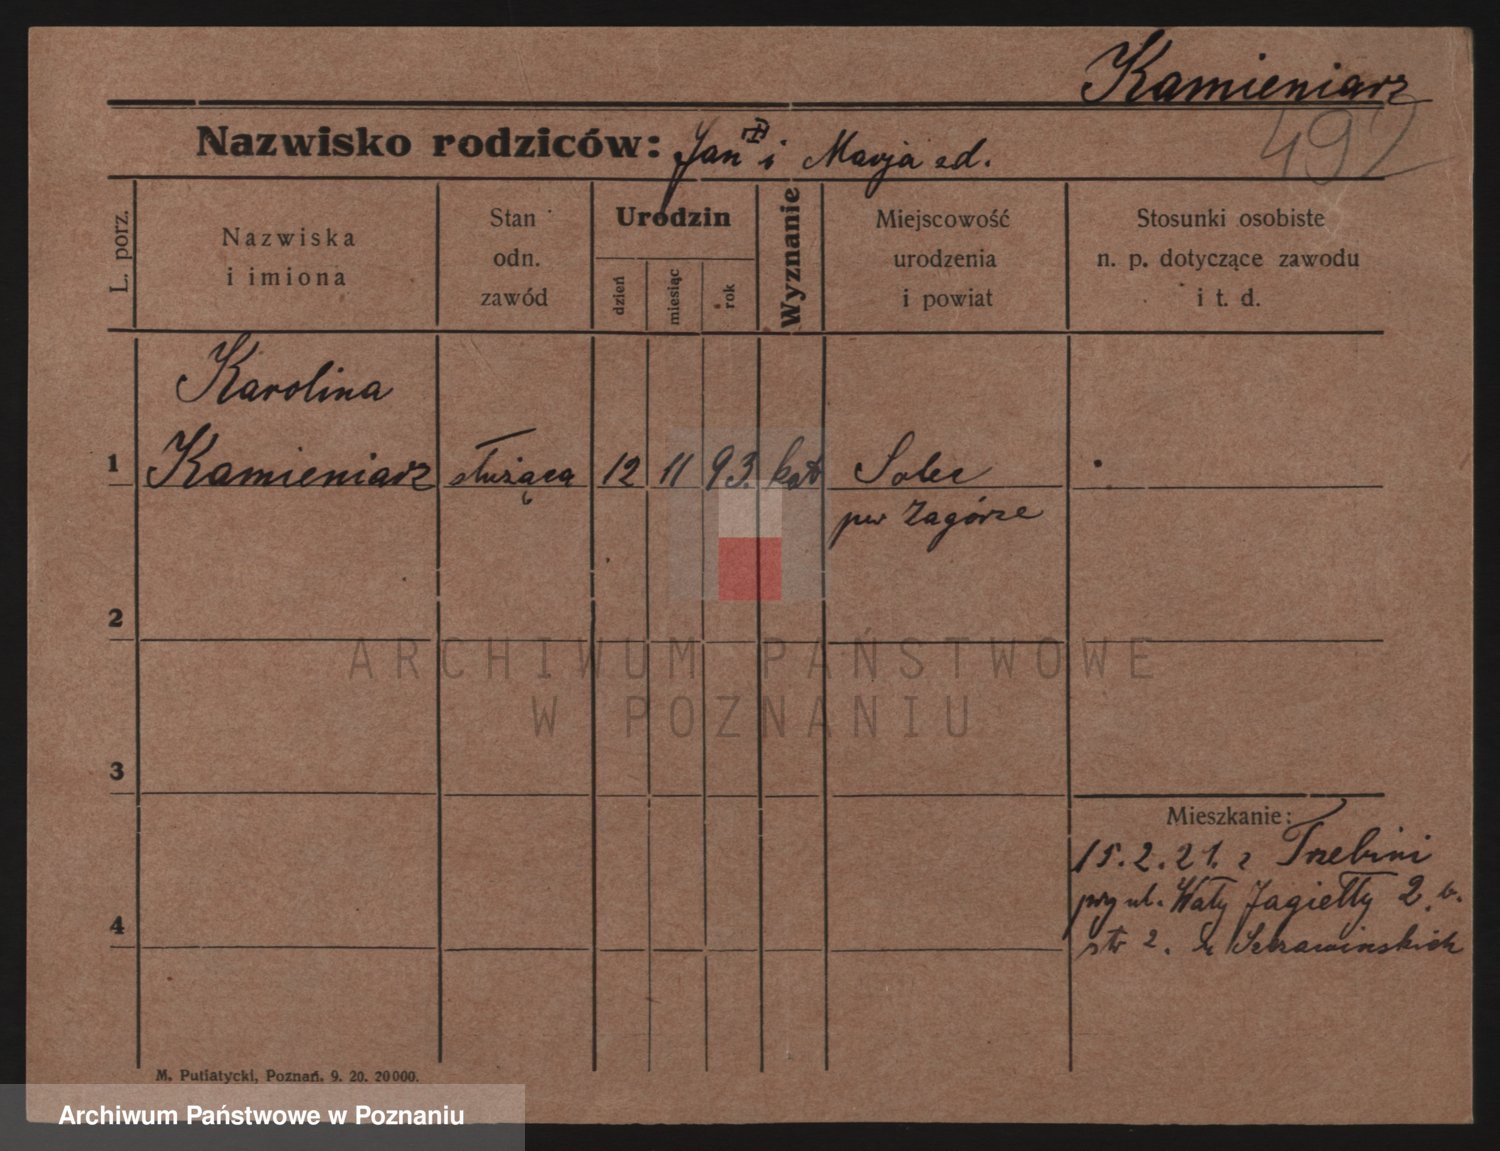 Kamieniarz
492
Nazwisko rodziców: Jan i Marja zd.
L. porz.
Nazwiska
i imiona
Stan
odn.
zawód
Urodzin
dzień
miesiąc
rok
Wyznanie
Miejscowość
urodzenia
i powiat
Stosunki osobiste
n. p. dotyczące zawodu
i t. d.
Karolina
1 Kamieniarz służąca 12 11 93. kat Solec
pw Zagórze
2
ARCHIWUM PAŃSTWOWE
W POZNANIU
3
Mieszkanie:
15.2.21. z Trzebini
przy ul. Wały Jagiełły 2.
4
M. Putiatycki, Poznań. 9. 20. 20000.
Archiwum Państwowe w Poznaniu